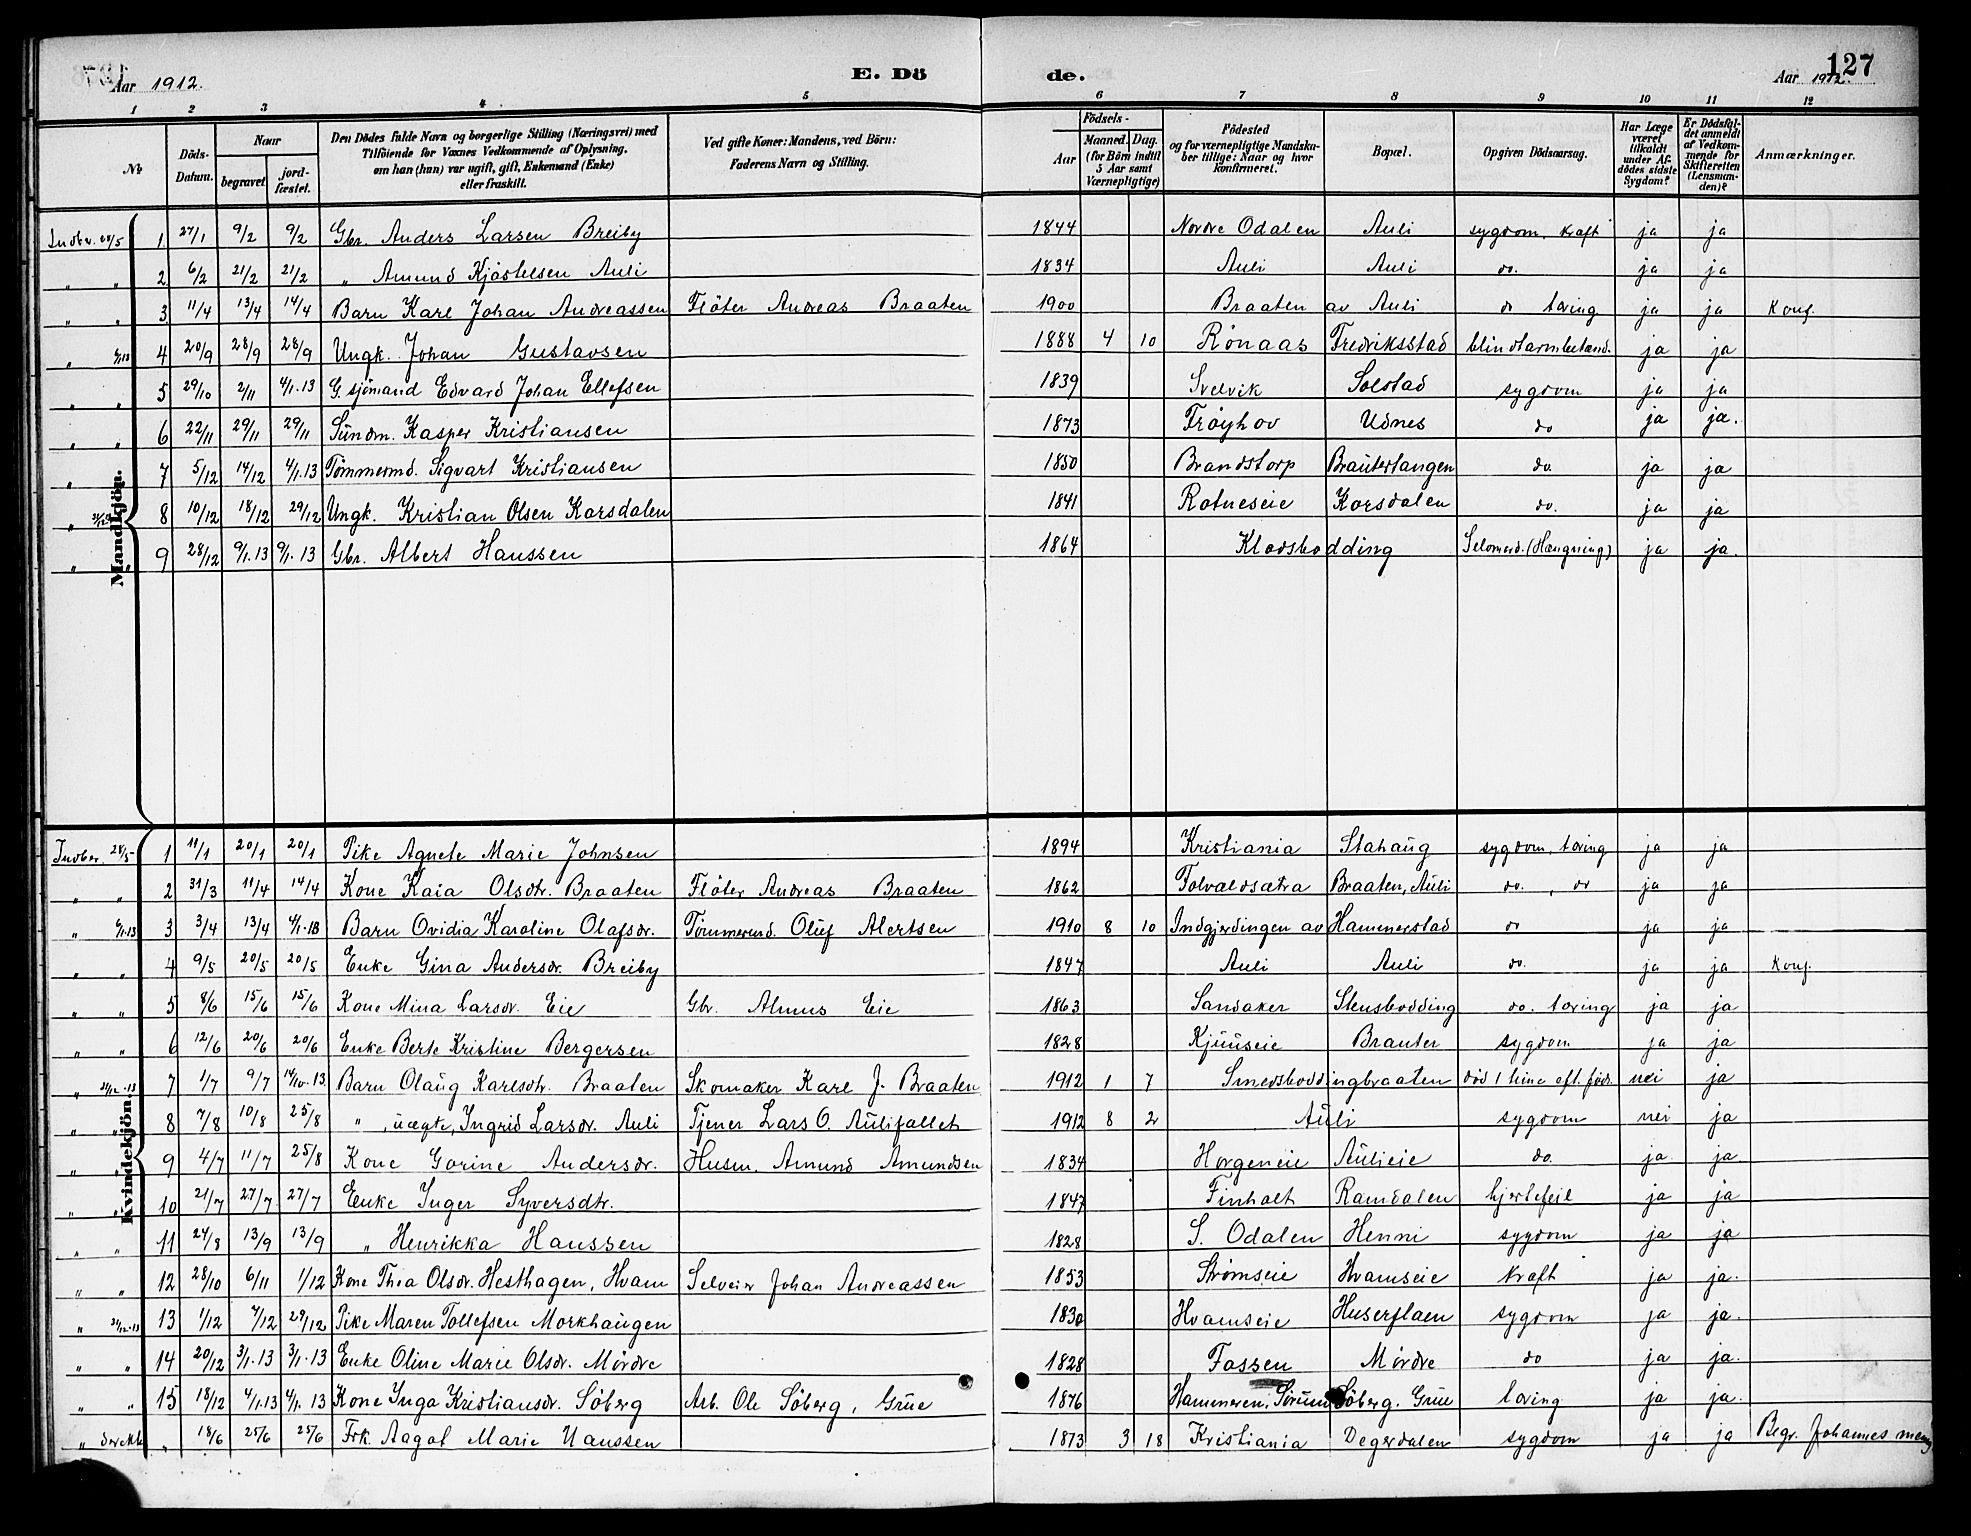 Aar 1912. E. Dö de. Aar 1912. 127
1 2 3 4 5 6 7 8 9 10 11 12
№ Döds-Datum. Naar begravet jordfæstet. Den Dödes fulde Navn og borgerlige Stilling (Næringsvei) med Tilföiende for Voxnes Vedkommende af Oplysning, om han (hun) var ugift, gift, Enkemand (Enke) eller fraskilt. Ved gifte Koner: Mandens, ved Börn: Faderens Navn og Stilling. Födsels- Aar Maaned. Dag. (for Börn indtil 5 Aar samt Værnepligtige) Födested og for værnepligtige Mandskaber tillige: Naar og hvor konfirmeret. Bopæl. Opgiven Dödsaarsag. Har Læge været tilkaldt under Afdödes sidste Sygdom? Er Dödsfaldet anmeldt af Vedkommende for Skifteretten (Lensmanden)? Anmærkninger.
Mandkjön.
Indber. 28/5 1 27/1 9/2 9/2 Gbr. Anders Larsen Breiby 1844 Nordre Odalen Auli sygdom, kraft ja ja
" " 2 6/2 21/2 21/2 " Amund Kjöstelsen Auli 1834 Auli Auli do. ja ja
" " 3 11/4 13/4 14/4 Barn Karl Johan Andreassen Flöter Andreas Braaten 1900 Braaten av Auli do tæring ja ja Konf.
" 6/1.13 4 20/9 28/9 28/9 Ungk. Johan Gustavsen 1888 4 10 Rönaas Fredriksstad blindtarmbetænd. ja ja
" " 5 29/10 2/11 4/1.13 G. sjömand Edvard Johan Ellefsen 1839 Svelvik Solstad sygdom ja ja
" " 6 22/11 29/11 29/11 Kasper Kristiansen 1873 Fröyhov Udnes do ja ja.
" 7 5/12 14/12 4/1.13 Tömmermd. Sigvart Kristiansen 1850 Brandstorp Brautertangen do. ja ja
" 8 10/12 18/12 29/12 Ungk. Kristian Olsen Korsdalen 1841 Rotneseie Korsdalen do. ja ja
" " 9 28/12 9/1.13 9/1.13 Gbr. Albert Hanssen 1864 Klodsbodding Selvmord. (Hængning) ja ja.
Kvindekjön.
Indber. 28/5 1 11/1 20/1 20/1 Pike Agnete Marie Johnsen 1894 Kristiania Stahaug sygdom, tæring ja ja
" " 2 31/3 11/4 14/4 Kone Kaia Olsdtr. Braaten Flöter Andreas Braaten 1862 Tolvaldsætra Braaten, Auli do. , do ja ja
" 6/1.13 3 3/4 13/4 4/1.13 Barn Ovidia Karoline Olafsdr. Tömmermd. Oluf Alertsen 1910 8 10 Indgjerdingen av Hammerstad do ja ja
" " 4 9/5 20/5 20/5 Enke Gina Andersdr. Breiby 1847 Auli Auli do. ja ja Konf.
" " 5 8/6 15/6 15/6 Kone Mina Larsdr. Eie Gbr. Almus Eie 1863 Sandaker Stensbodding do. tæring ja ja
" " 6 12/6 20/6 20/6 Enke Berte Kristine Bergersen 1828 Kjuuseie Brauter sygdom ja ja
" 7 1/7 9/7 14/10.13. Barn Olaug Karlsdtr. Braaten Skomaker Karl J. Braaten 1912 1 7 Smedsboddingbraaten död 1 time eft. föds. nei ja
" " 8 7/8 10/8 25/8 " , uægte, Ingrid Larsdr. Auli Tjener Lars O. Aulifallet 1912 8 2 Auli sygdom nei ja
" 9 4/7 11/7 25/8 Kone Gorine Andersdr. Husm. Amund Amundsen 1834 Horgeneie Aulieie do. ja. ja.
" " 10 21/7 27/7 27/7 Enke Inger Syversdtr. 1847 Finholt Ramdalen hjertefeil ja ja
" " 11 24/8 13/9 13/9 " Henrikka Hanssen 1828 S. Odalen Henni sygdom ja ja
" " 12 28/10 6/11 1/12 Kone Thea Olsdr. Hesthagen, Hvam Selveier Johan Andreassen 1853 Strömseie Hvamseie kraft ja ja.
" 31/12.13 13 1/12 7/12 29/12 Pike Maren Tollefsen Morkhaugen 1830 Hvamseie Huserflaen sygdom ja ja.
" " 14 20/12 3/1.13 3/1.13 Enke Oline Marie Olsdr. Mördre 1828 Fossen Mördre do ja ja.
" " 15 18/12 4/1.13 4/1.13 Kone Inga Kristiansdr. Söberg Arb. Ole Söberg, Grue 1876 Hammeren, Sörum Söberg, Grue tæring ja ja.
" direkte " 18/6 25/6 25/6 Frk. Aagot Marie Hanssen 1873 3 18 Kristiania Degerdalen sygdom ja ja Begr. Johannes menig